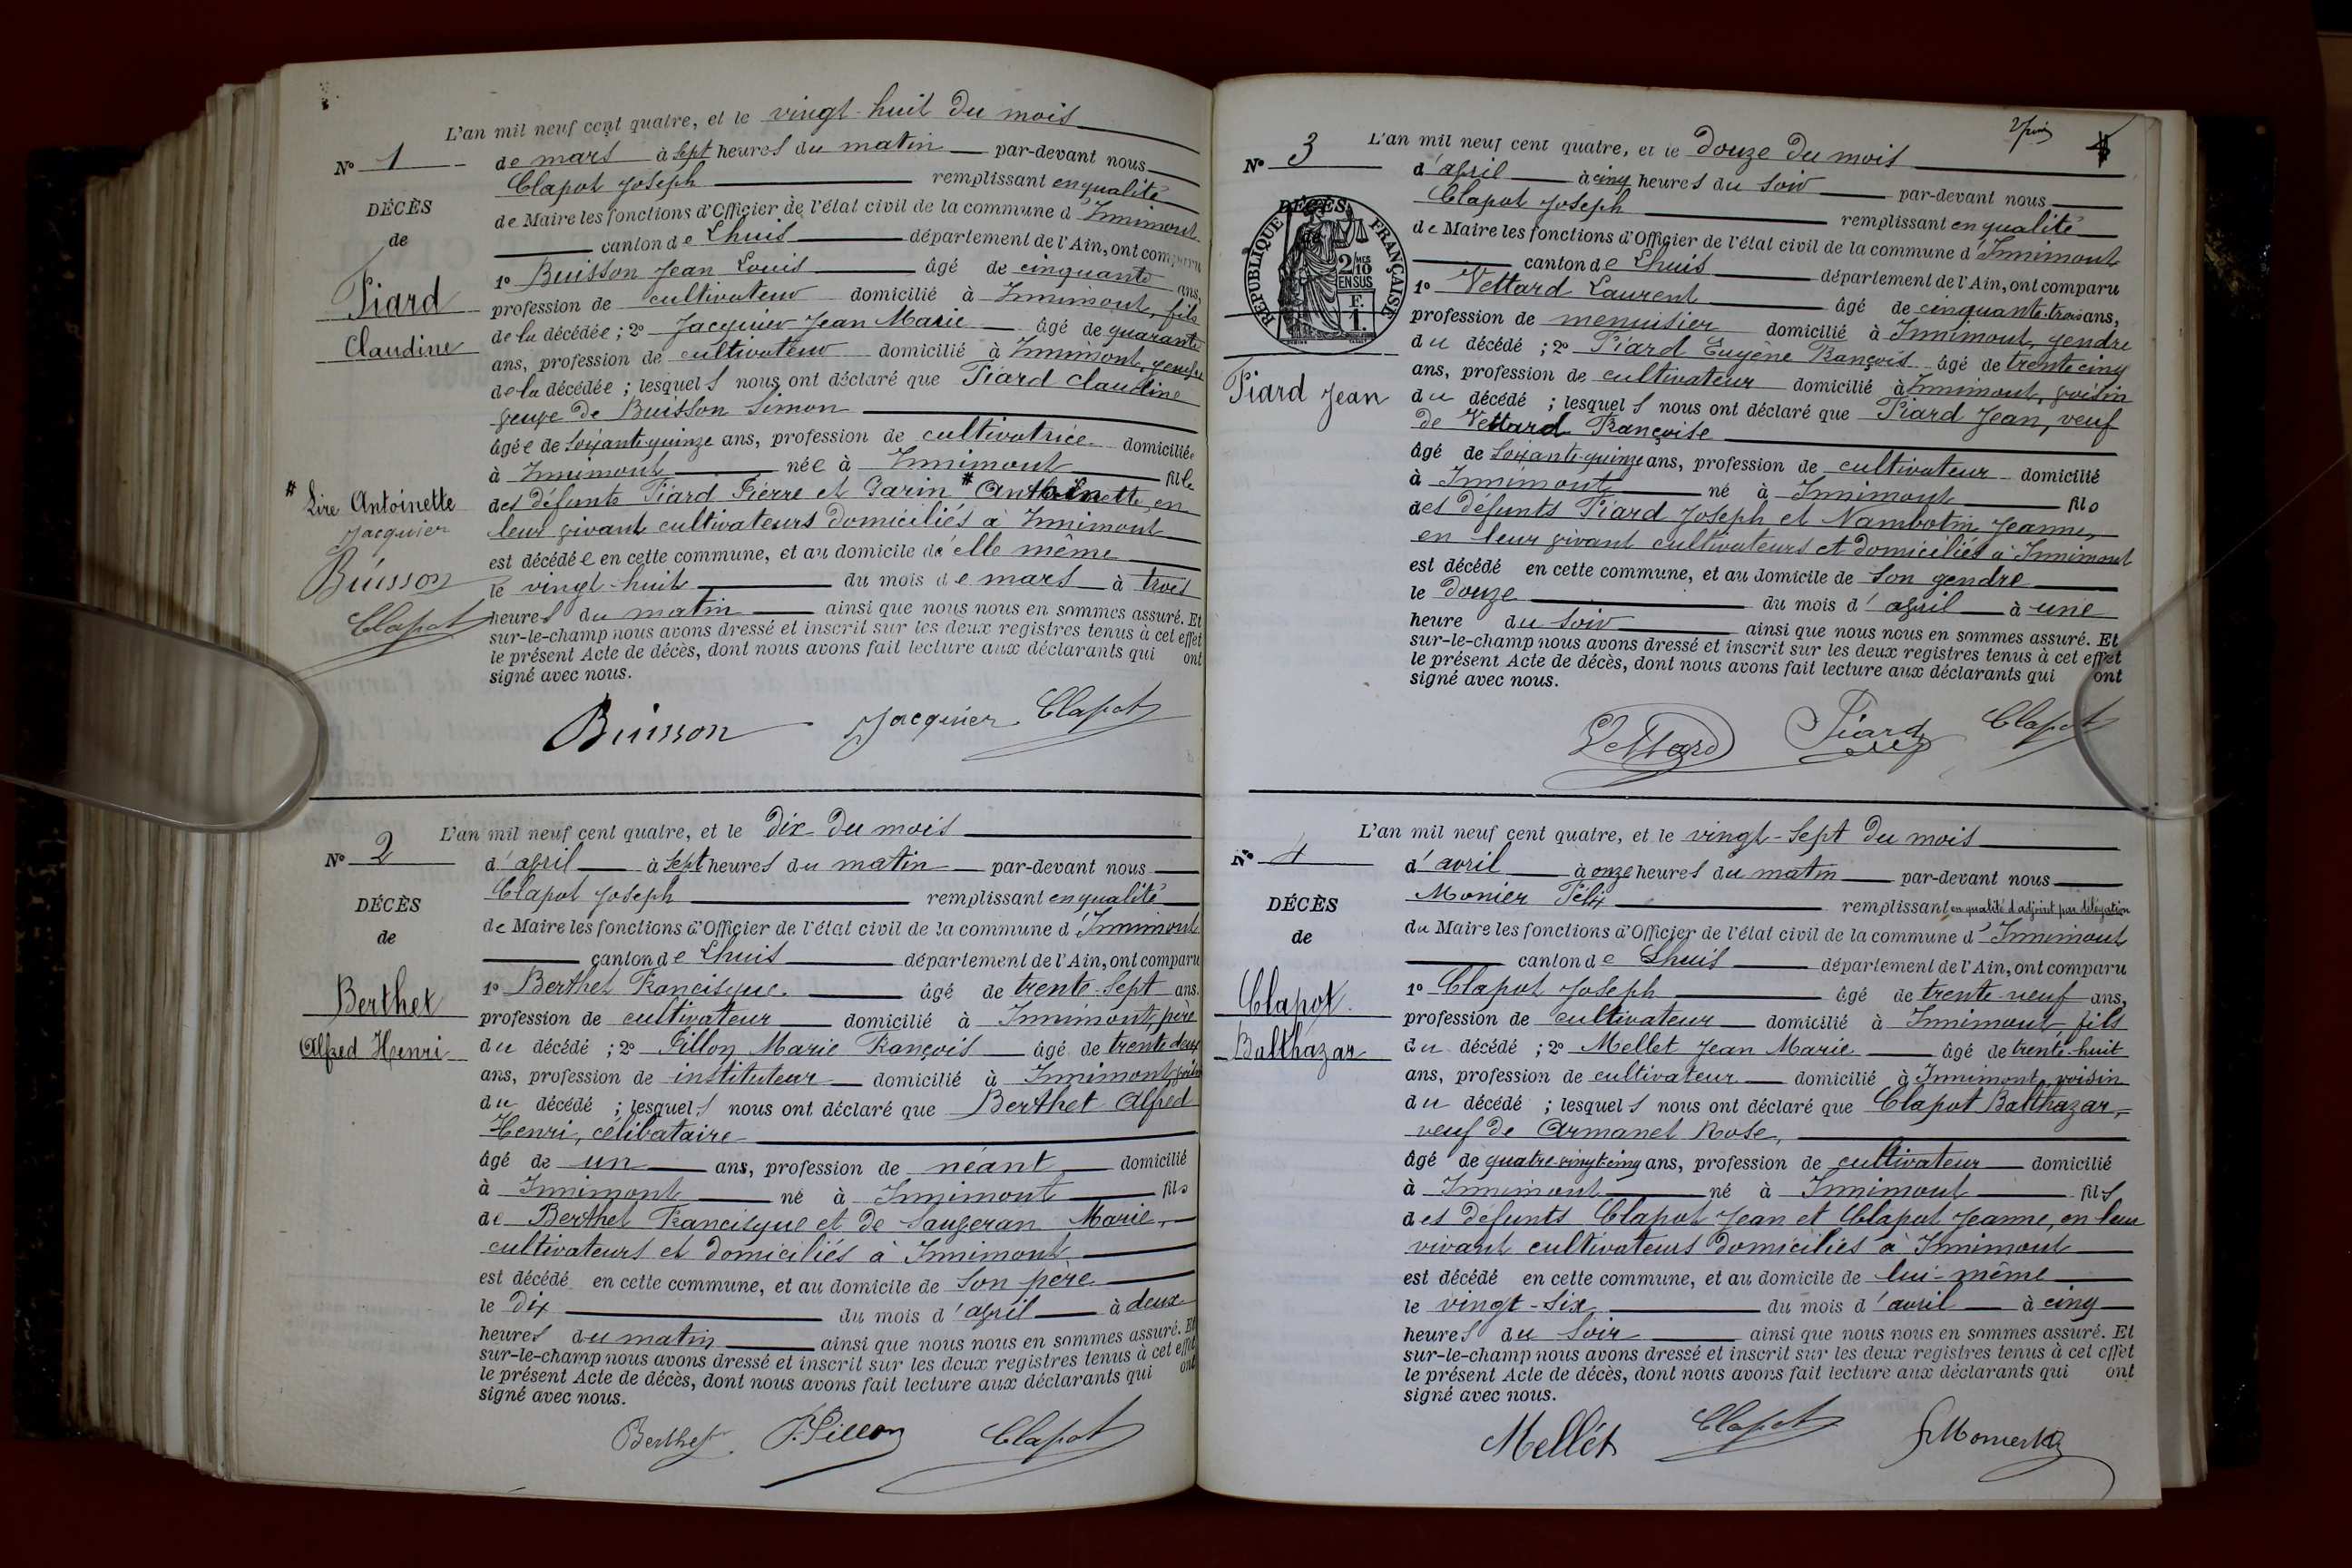 L'an mil neuf cent quatre, et le vingt-huit du mois
N° 1
de mars à sept heures du matin par-devant nous
Clapot Joseph remplissant en qualité
DÉCÈS
de Maire les fonctions d'Officier de l'état civil de la commune d'Innimont
de
canton de Lhuis département de l'Ain, ont comparu
1° Buisson Jean Louis âgé de cinquante ans,
Piard
profession de cultivateur domicilié à Innimont, fils
Claudine
de la décédée ; 2° Jacquier Jean Marie âgé de quarante
ans, profession de cultivateur domicilié à Innimont, gendre
de la décédée ; lesquels nous ont déclaré que Piard Claudine
veuve de Buisson Simon
âgée de soixante quinze ans, profession de cultivatrice domiciliée
à Innimont née à Innimont fille
des défunts Piard Pierre et Garin # Antoinette, en
# Lire Antoinette
Jacquier
Buisson
Clapot
leur vivant cultivateurs domiciliés à Innimont
est décédée en cette commune, et au domicile d'elle même
le vingt-huit du mois de mars à trois
heures du matin ainsi que nous nous en sommes assuré. Et
sur-le-champ nous avons dressé et inscrit sur les deux registres tenus à cet effet
le présent Acte de décès, dont nous avons fait lecture aux déclarants qui ont
signé avec nous.
Buisson Jacquier Clapot
L'an mil neuf cent quatre, et le dix du mois
N° 2
d'avril à sept heures du matin par-devant nous
Clapot Joseph remplissant en qualité
DÉCÈS
de Maire les fonctions d'Officier de l'état civil de la commune d'Innimont
de
canton de Lhuis département de l'Ain, ont comparu
1° Berthet Francisque âgé de trente-sept ans.
Berthet
profession de cultivateur domicilié à Innimont, père
Alfred Henri
du décédé ; 2° Fillon Marie François âgé de trente deux
ans, profession de instituteur domicilié à Innimont, voisin
du décédé ; lesquels nous ont déclaré que Berthet Alfred
Henri, célibataire
âgé de un ans, profession de néant domicilié
à Innimont né à Innimont fils
de Berthet Francisque et de Saugeran Marie,
cultivateurs et domiciliés à Innimont
est décédé en cette commune, et au domicile de son père
le dix du mois d'avril à deux
heures du matin ainsi que nous nous en sommes assuré. Et
sur-le-champ nous avons dressé et inscrit sur les deux registres tenus à cet effet
le présent Acte de décès, dont nous avons fait lecture aux déclarants qui ont
signé avec nous.
Berthet F. Fillon Clapot
L'an mil neuf cent quatre, et le douze du mois
N° 3
d'avril à cinq heures du soir par-devant nous
Clapot Joseph remplissant en qualité
DÉCÈS
de
RÉPUBLIQUE FRANÇAISE
2/10 MES
EN SUS
F.
1.
de Maire les fonctions d'Officier de l'état civil de la commune d'Innimont
canton de Lhuis département de l'Ain, ont comparu
1° Vettard Laurent âgé de cinquante-trois ans,
profession de menuisier domicilié à Innimont, gendre
du décédé ; 2° Piard Eugène François âgé de trente cinq
ans, profession de cultivateur domicilié à Innimont, voisin
Piard Jean
du décédé ; lesquels nous ont déclaré que Piard Jean, veuf
de Vettard Françoise
âgé de soixante quinze ans, profession de cultivateur domicilié
à Innimont né à Innimont fils
des défunts Piard Joseph et Nambotin Jeanne,
en leur vivant cultivateurs et domiciliés à Innimont
est décédé en cette commune, et au domicile de son gendre
le douze du mois d'avril à une
heure du soir ainsi que nous nous en sommes assuré. Et
sur-le-champ nous avons dressé et inscrit sur les deux registres tenus à cet effet
le présent Acte de décès, dont nous avons fait lecture aux déclarants qui ont
signé avec nous.
Vettard Piard Clapot
L'an mil neuf cent quatre, et le vingt-sept du mois
N° 4
d'avril à onze heures du matin par-devant nous
Monier Félix remplissant en qualité d'adjoint par délégation
DÉCÈS
du Maire les fonctions d'Officier de l'état civil de la commune d'Innimont
de
canton de Lhuis département de l'Ain, ont comparu
1° Clapot Joseph âgé de trente-neuf ans,
Clapot
profession de cultivateur domicilié à Innimont, fils
Balthazar
du décédé ; 2° Mellet Jean Marie âgé de trente-huit
ans, profession de cultivateur domicilié à Innimont, voisin
du décédé ; lesquels nous ont déclaré que Clapot Balthazar,
veuf de Armanet Rose,
âgé de quatre-vingt-cinq ans, profession de cultivateur domicilié
à Innimont né à Innimont fils
des défunts Clapot Jean et Clapot Jeanne, en leur
vivant cultivateurs domiciliés à Innimont
est décédé en cette commune, et au domicile de lui-même
le vingt-six du mois d'avril à cinq
heures du soir ainsi que nous nous en sommes assuré. Et
sur-le-champ nous avons dressé et inscrit sur les deux registres tenus à cet effet
le présent Acte de décès, dont nous avons fait lecture aux déclarants qui ont
signé avec nous.
Mellet Clapot